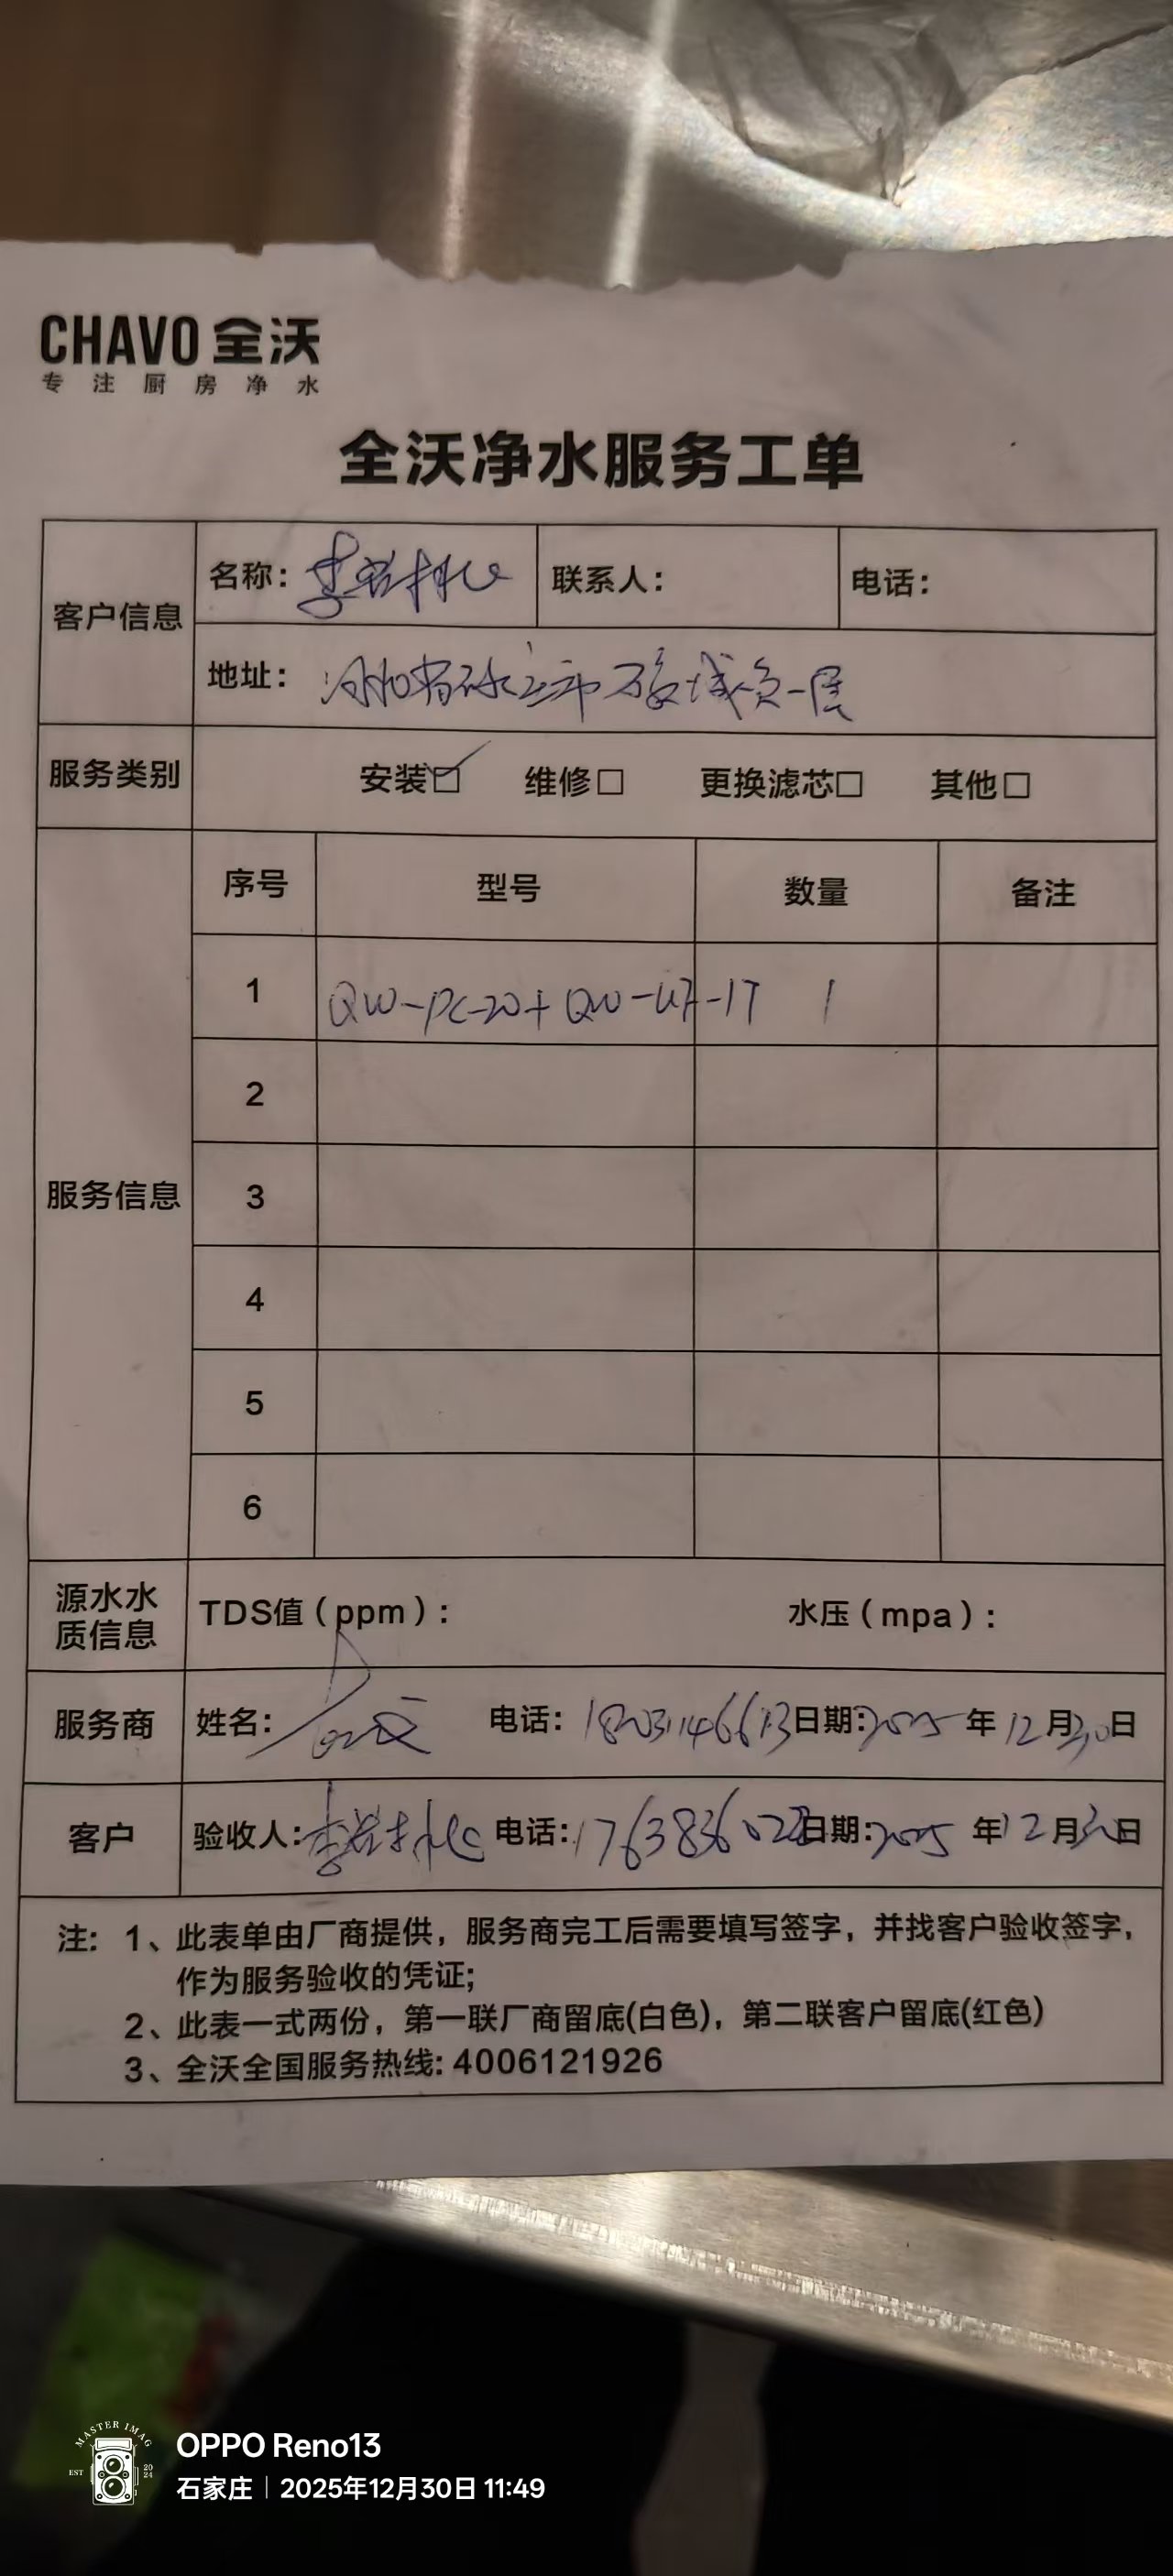 CHAVO 全沃
专注厨房净水
全沃净水服务工单
客户信息
名称：
联系人：
电话：
地址：
服务类别
安装☑ 维修□ 更换滤芯□ 其他□
服务信息
序号 型号 数量 备注
1 QW-PC-20+QW-UF-1T 1
2
3
4
5
6
源水水质信息
TDS值（ppm）： 水压（mpa）：
服务商 姓名： 电话： 日期：2025年12月30日
客户 验收人： 电话： 日期：2025年12月30日
注：1、此表单由厂商提供，服务商完工后需要填写签字，并找客户验收签字，
作为服务验收的凭证；
2、此表一式两份，第一联厂商留底(白色)，第二联客户留底(红色)
3、全沃全国服务热线: 4006121926
MASTER IMAG
EST 2024
OPPO Reno13
石家庄｜2025年12月30日 11:49